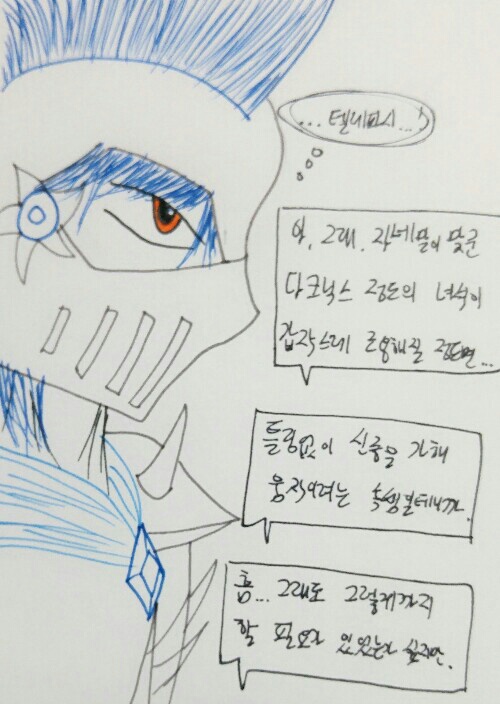 ...텔레파시...
아, 그래. 자네말이 맞군
다크닉스 정도의 녀석이
갑작스레 조용해질 정도면...
틀림없이 신중을 가해
움직이려는 속셈일테니까.
흠... 그래도 그렇게까지
할 필요가 있었는가 싶지만.